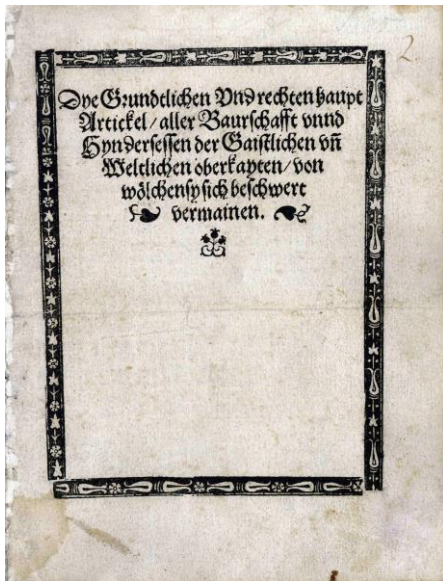 2
Dye Grundtlichen Vnd rechten haupt
Artickel/ aller Baurschafft vnnd
Hyndersessen der Gaistlichen vñ
Weltlichen oberkayten/ von
wölchen sy sich beschwert
vermainen.